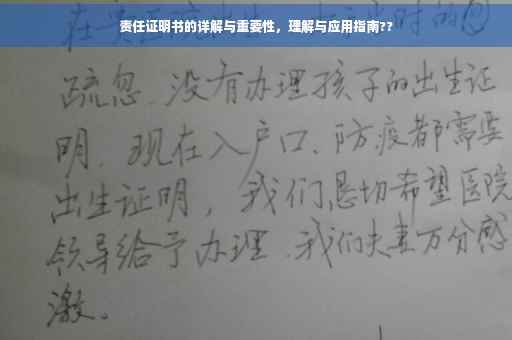 责任证明书的详解与重要性，理解与应用指南??
在
时的
疏忽、没有办理孩子的出生证
明、现在入户口、防疫都需要
出生证明，我们恳切希望医院
领导给予办理、我们夫妻万分感
激。